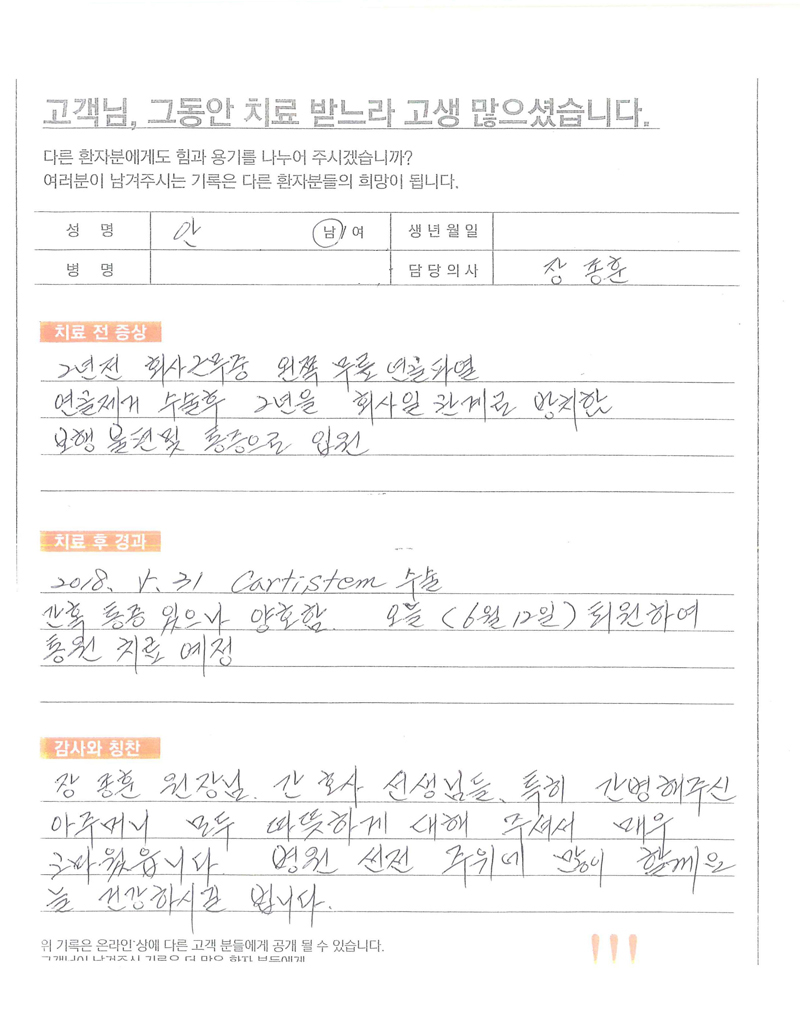 고객님, 그동안 치료 받느라 고생 많으셨습니다.
다른 환자분에게도 힘과 용기를 나누어 주시겠습니까?
여러분이 남겨주시는 기록은 다른 환자분들의 희망이 됩니다.
성 명 안 남/여 생년월일
병 명 담당의사 장종훈
치료 전 증상
2년전 회사근무중 왼쪽 무릎 연골파열
연골제거 수술후 2년을 회사일 관계로 방치함
보행 불편및 통증으로 입원
치료 후 경과
2018. 5. 31 Cartistem 수술
간혹 통증 있으나 양호함. 오늘 (6월 12일) 퇴원하여
통원 치료 예정
감사와 칭찬
장종훈 원장님. 간호사 선생님들, 특히 간병해주신
아주머니 모두 따뜻하게 대해 주셔서 매우
고마웠읍니다. 병원 선전 주위에 많이 할께요
늘 건강하시길 빕니다.
위 기록은 온라인 상에 다른 고객 분들에게 공개 될 수 있습니다.